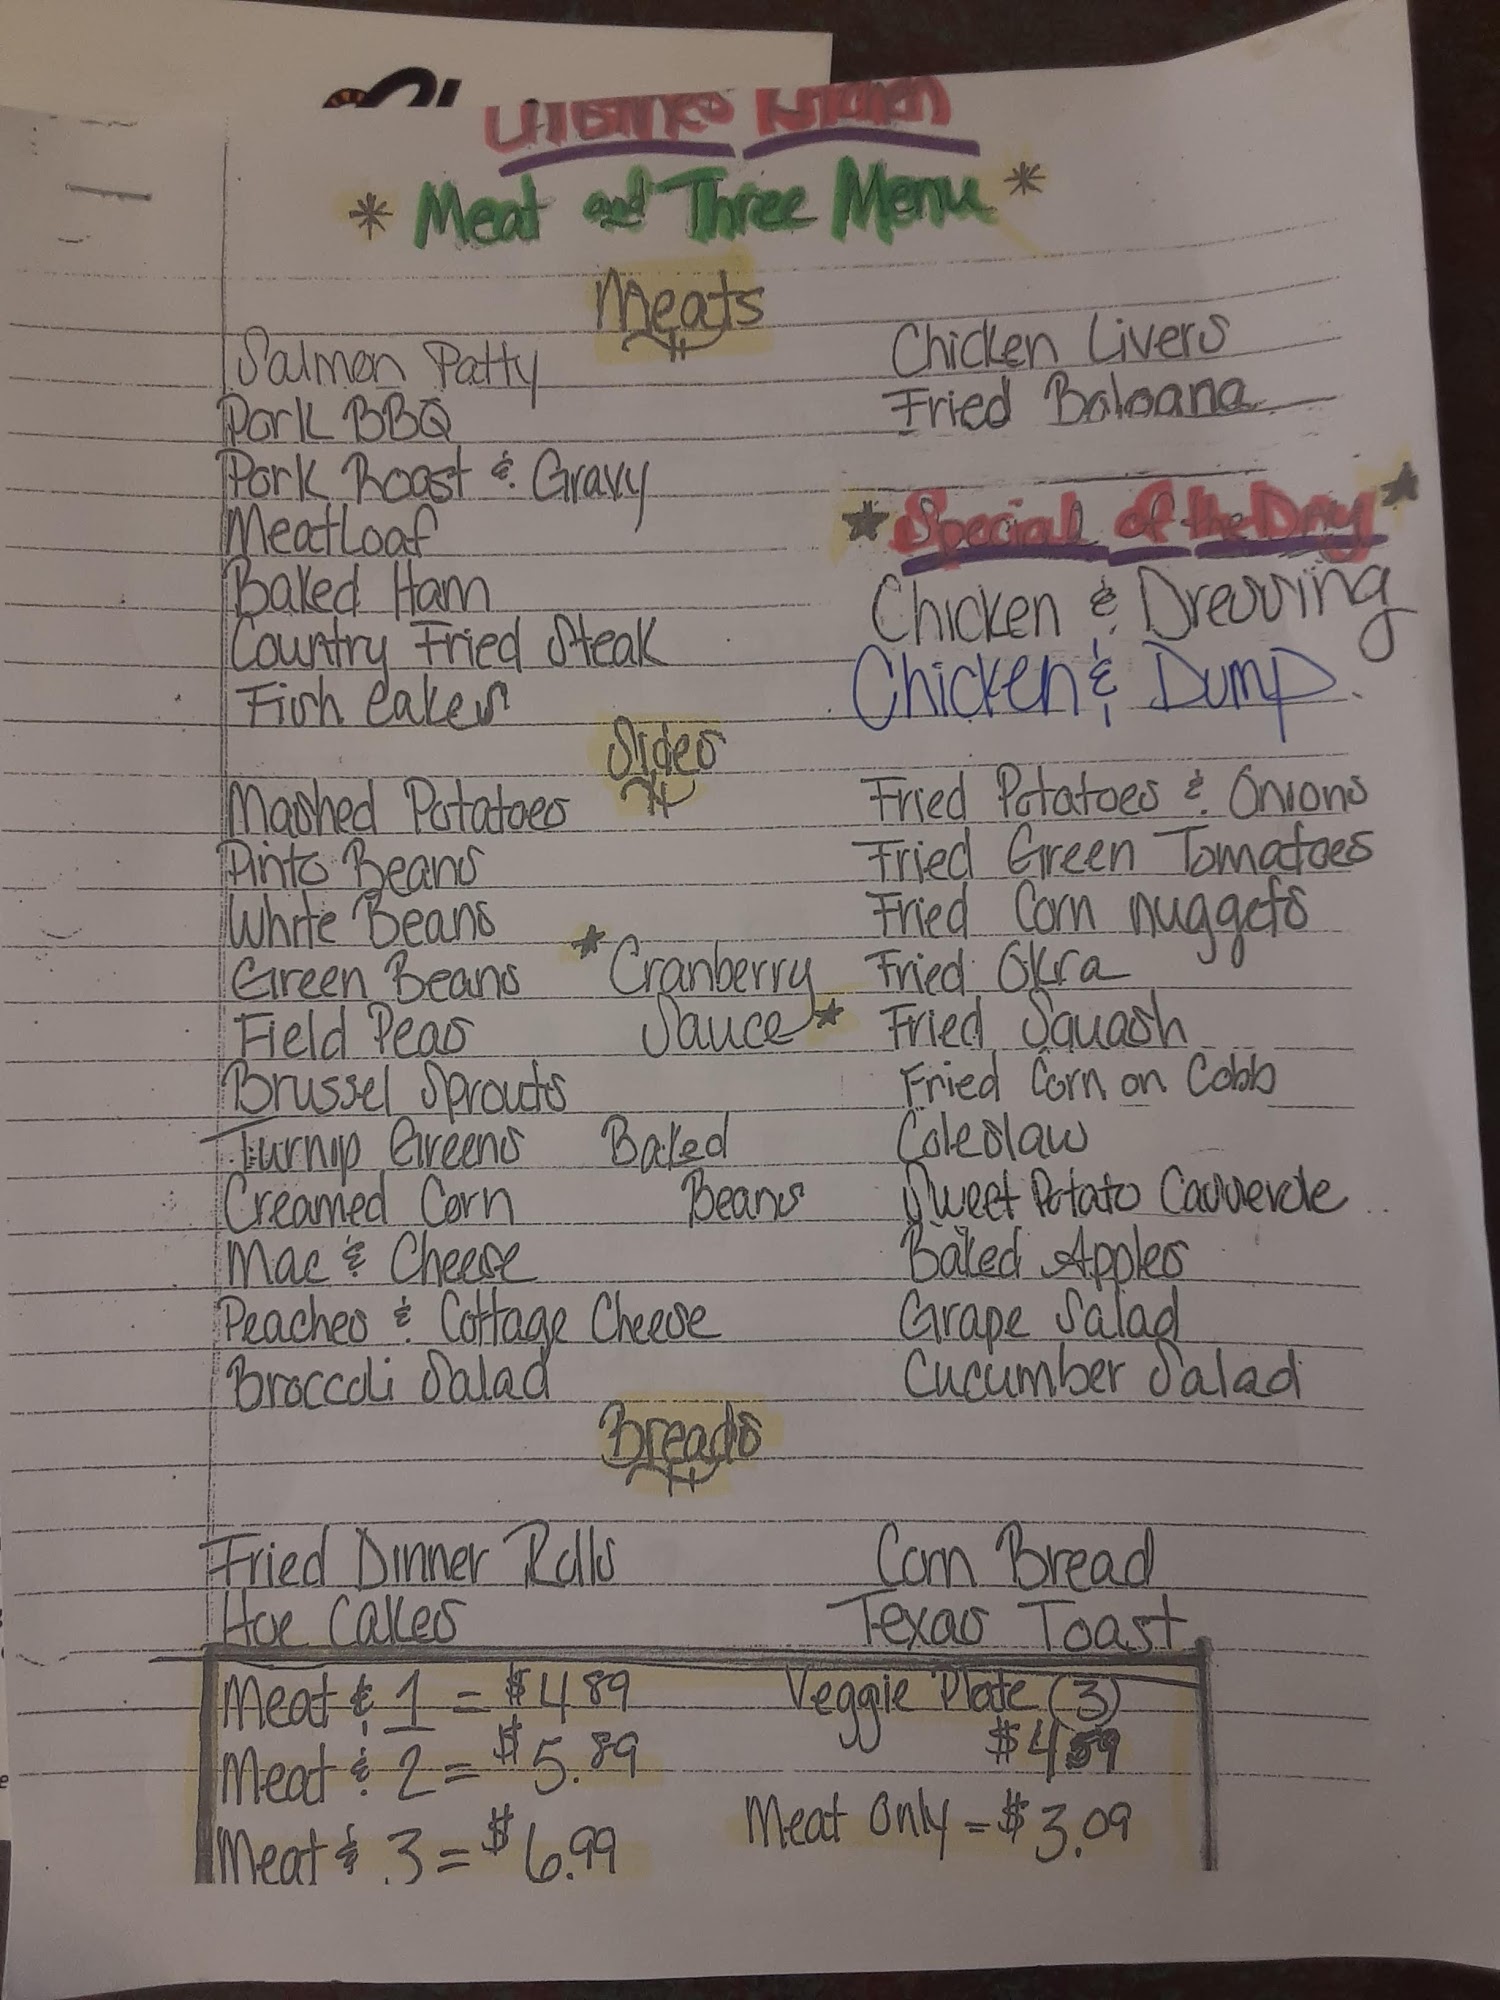 Kitchen
* Meat and Three Menu *
Meats
Salmon Patty
Pork BBQ
Pork Roast & Gravy
MeatLoaf
Baked Ham
Country Fried Steak
Fish Cakes
Chicken Livers
Fried Baloana
★ Special of the Day ★
Chicken & Dressing
Chicken & Dump.
Sides
Mashed Potatoes
Pinto Beans
White Beans
Green Beans
Field Peas
Brussel Sprouts
Turnip Greens
Creamed Corn
Mac & Cheese
Peaches & Cottage Cheese
Broccoli Salad
★ Cranberry
Sauce ★
Baked
Beans
Fried Potatoes & Onions
Fried Green Tomatoes
Fried Corn nuggets
Fried Okra
Fried Squash
Fried Corn on Cobb
Coleslaw
Sweet Potato Casserole
Baked Apples
Grape Salad
Cucumber Salad
Breads
Fried Dinner Rolls
Hoe Cakes
Corn Bread
Texas Toast
Meat & 1 = $4.89
Meat & 2 = $5.89
Meat & 3 = $6.99
Veggie Plate (3)
Meat Only = $3.09